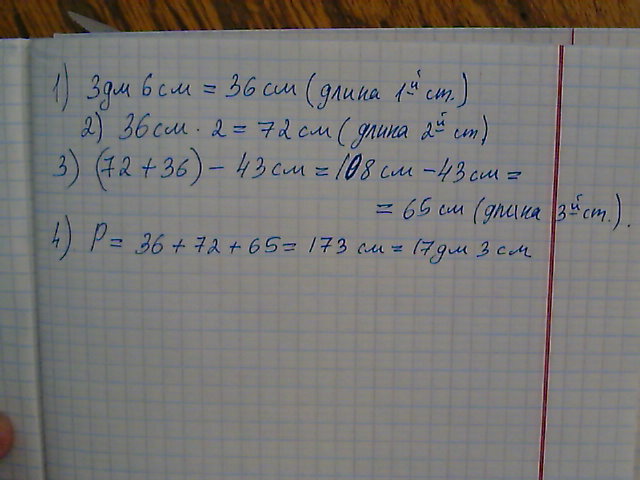 1) 3дм 6см = 36 см (длина 1й ст.)
2) 36см · 2 = 72 см (длина 2й ст)
3) (72 + 36) - 43 см = 108 см - 43 см =
= 65 см (длина 3й ст.).
4) P = 36 + 72 + 65 = 173 см = 17дм 3 см